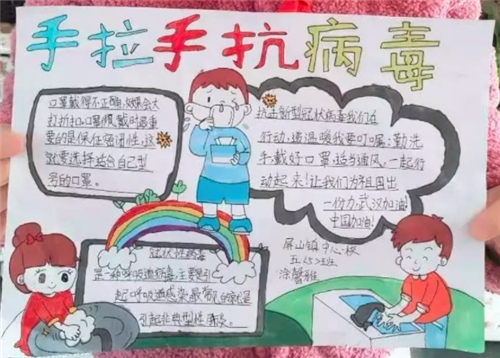 手拉手抗病毒
口罩戴得不正确,效果会大
打折扣口罩佩戴时最重
要的是保住密闭性,这
就要选择适合自己型
号的口罩。
抗击新型冠状病毒我们在
行动,请温暖我要叮嘱:勤洗
手戴好口罩,适易通风,一起行
动起来!让我们为祖国出
一份力,武汉加油!
中国加油!
冠状性病毒
是一种呼吸道病毒,主要是引
起呼吸道感染最常
引起非典型性肺炎。
屏山镇中心校
五(5)班
涂馨雅